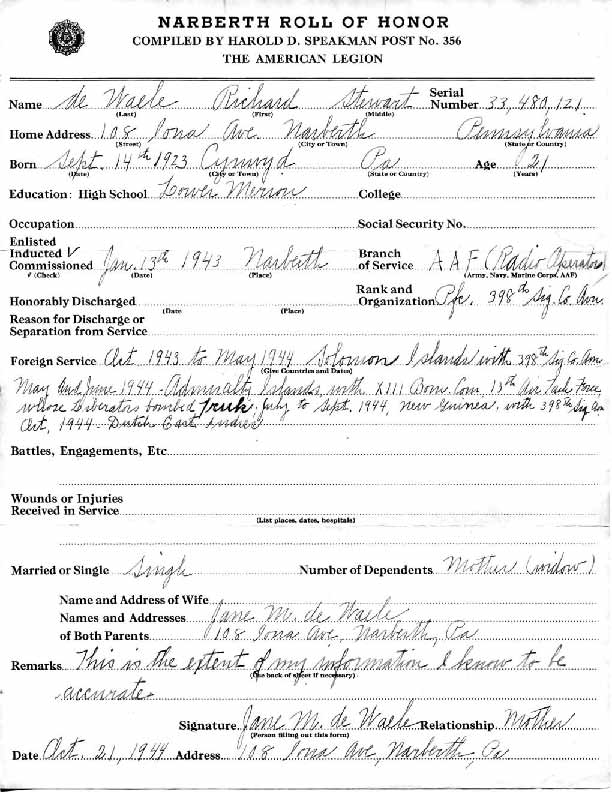 NARBERTH ROLL OF HONOR
COMPILED BY HAROLD D. SPEAKMAN POST No. 356
THE AMERICAN LEGION
Name de Waele Richard Stewart Serial Number 33,480,121
(Last) (First) (Middle)
Home Address 108 Iona Ave. Narberth Pennsylvania
(Street) (City or Town) (State or Country)
Born Sept. 14th 1923 Cynwyd Pa Age 21
(Date) (City or Town) (State or Country) (Years)
Education: High School Lower Merion College
Occupation Social Security No.
Enlisted
Inducted √
Commissioned Jan. 13th 1943 Narberth Branch of Service A A F (Radio Operator)
(Check) (Date) (Place) (Army, Navy, Marine Corps, AAF)
Honorably Discharged Rank and Organization Pfc. 398th Sig. Co. Avn.
(Date (Place)
Reason for Discharge or
Separation from Service
Foreign Service Oct 1943 to May 1944 Solomon Islands with 398th Sig. Co. Avn
(Give Countries and Dates)
May and June 1944 - Admiralty Islands, with XIII Bom. Com. 13th Air Task Force,
whose Liberators bombed Truk. July to Sept. 1944, New Guinea, with 398th Sig Avn
Oct, 1944 - Dutch East Indies
Battles, Engagements, Etc.
Wounds or Injuries
Received in Service
(List places, dates, hospitals)
Married or Single Single Number of Dependents Mother (widow)
Name and Address of Wife
Names and Addresses Jane M. de Waele
of Both Parents 108 Iona Ave, Narberth, Pa
Remarks This is the extent of my information I know to be
(Use back of sheet if necessary)
accurate.
Signature Jane M. de Waele Relationship Mother
(Person filling out this form)
Date Oct. 21, 1944 Address 108 Iona Ave, Narberth, Pa